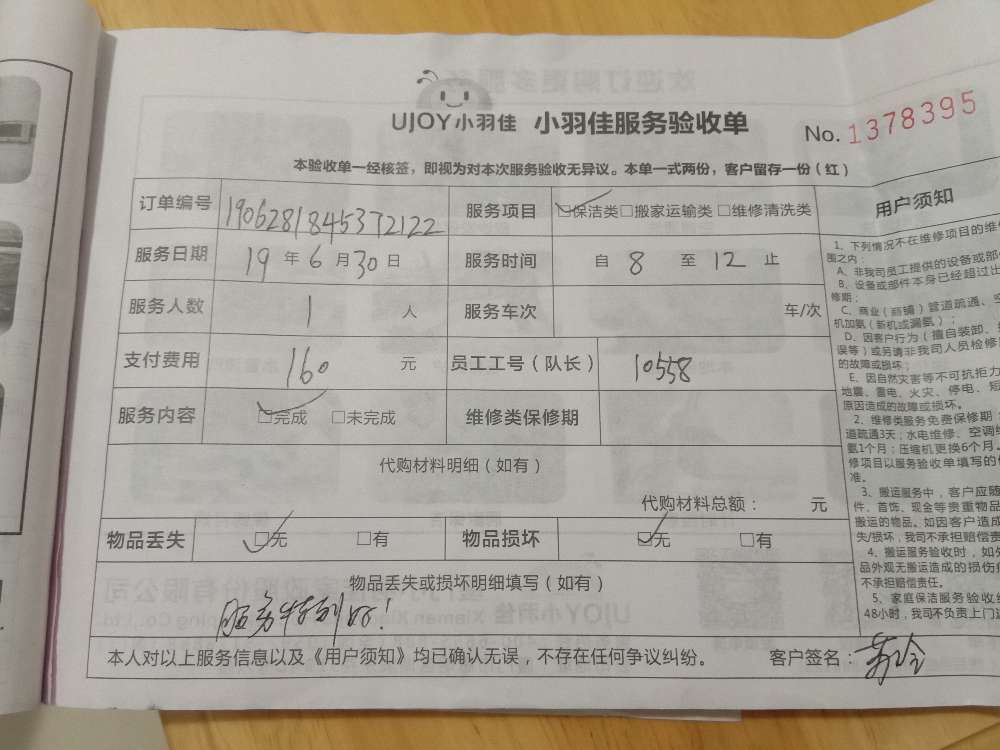 UJOY小羽佳 小羽佳服务验收单 No.1378395
本验收单一经核签，即视为对本次服务验收无异议。本单一式两份，客户留存一份（红）
订单编号 1906281845372122 服务项目 ☑保洁类□搬家运输类□维修清洗类
服务日期 19年6月30日 服务时间 自8至12止
服务人数 1人 服务车次 车/次
支付费用 160元 员工工号（队长） 10558
服务内容 ☑完成 □未完成 维修类保修期
代购材料明细（如有）
代购材料总额： 元
物品丢失 ☑无 □有 物品损坏 ☑无 □有
物品丢失或损坏明细填写（如有）
服务特别好！
本人对以上服务信息以及《用户须知》均已确认无误，不存在任何争议纠纷。 客户签名：
用户须知
1、下列情况不在维修项目的维
围之内：
A、非我司员工提供的设备或部
B、设备或部件本身已经超过出
修期；
C、商业（商铺）管道疏通、空
机加氨（新机或漏氨）；
D、因客户行为（擅自装卸、
误等）或另请非我司人员检修
的故障或损坏；
E、因自然灾害等不可抗拒力
地震、雷电、火灾、停电、短
原因造成的故障或损坏。
2、维修类服务免费保修期：
道疏通3天；水电维修、空调
氨1个月；压缩机更换6个月。
修项目以服务验收单填写的
准。
3、搬运服务中，客户应随
件、首饰、现金等贵重物品
搬运的物品。如因客户造成
失/损坏，我司不承担赔偿责
4、搬运服务验收时，如
品外观无搬运造成的损伤
不承担赔偿责任。
5、家庭保洁服务验收
48小时，我司不负责上门